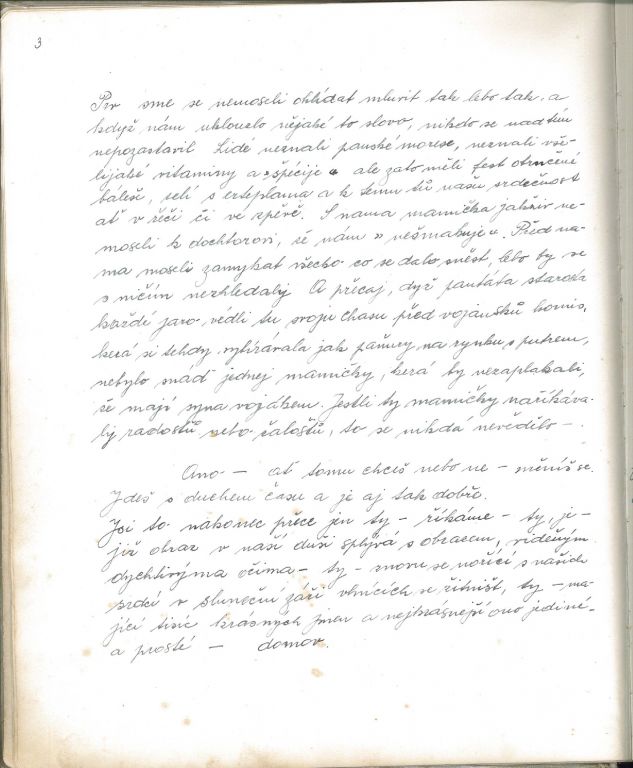 3
Prv sme se nemoseli ohlídat mluvit tak lebo tak, a
když nám uklouzlo nějaké to slovo, nikdo se nad tím
nepozastavil. Lidé neznali panské morese, neznali vše-
lijaké vitaminy a špécije a ale zato měli fest otrncené
báleše, zelí s erteplama a k temu tú našu srdečnost
ať v řeči či ve zpěvě. S nama mamička jakživ ne-
moseli k dochtorovi, že nám „nešmakuje“. Před na-
ma moseli zamykat všecko co se dalo sněst, lebo by se
s ničím nezhledaly. A přecaj, dyž pantáta starosta
každé jaro védli tu svoju chasu před vojanskú komis,
kerá si tehdy vybírávala jak pažury na rynku s putrem,
nebylo snáď jednej mamičky, kerá by nezaplakali,
že majú syna vojákem. Jestli ty mamičky naříkáva-
ly radostú nebo žalostú, to se nikdá nevědělo –.
Ano – ať tomu chceš nebo ne – měníš se.
Jdeš s duchem času a je aj tak dobře.
Jsi to nakonec přece jen ty – říkáme – ty, je-
jíž obraz v naší duši splývá s obrazem, viděným
dychtivýma očima – ty – znovu se nořící s našich
srdcí v sluneční záři vlnících se žitnišť, ty – ma-
jící tisíc krásných jmen a nejkrásnější ono jediné –
a prosté – domov.